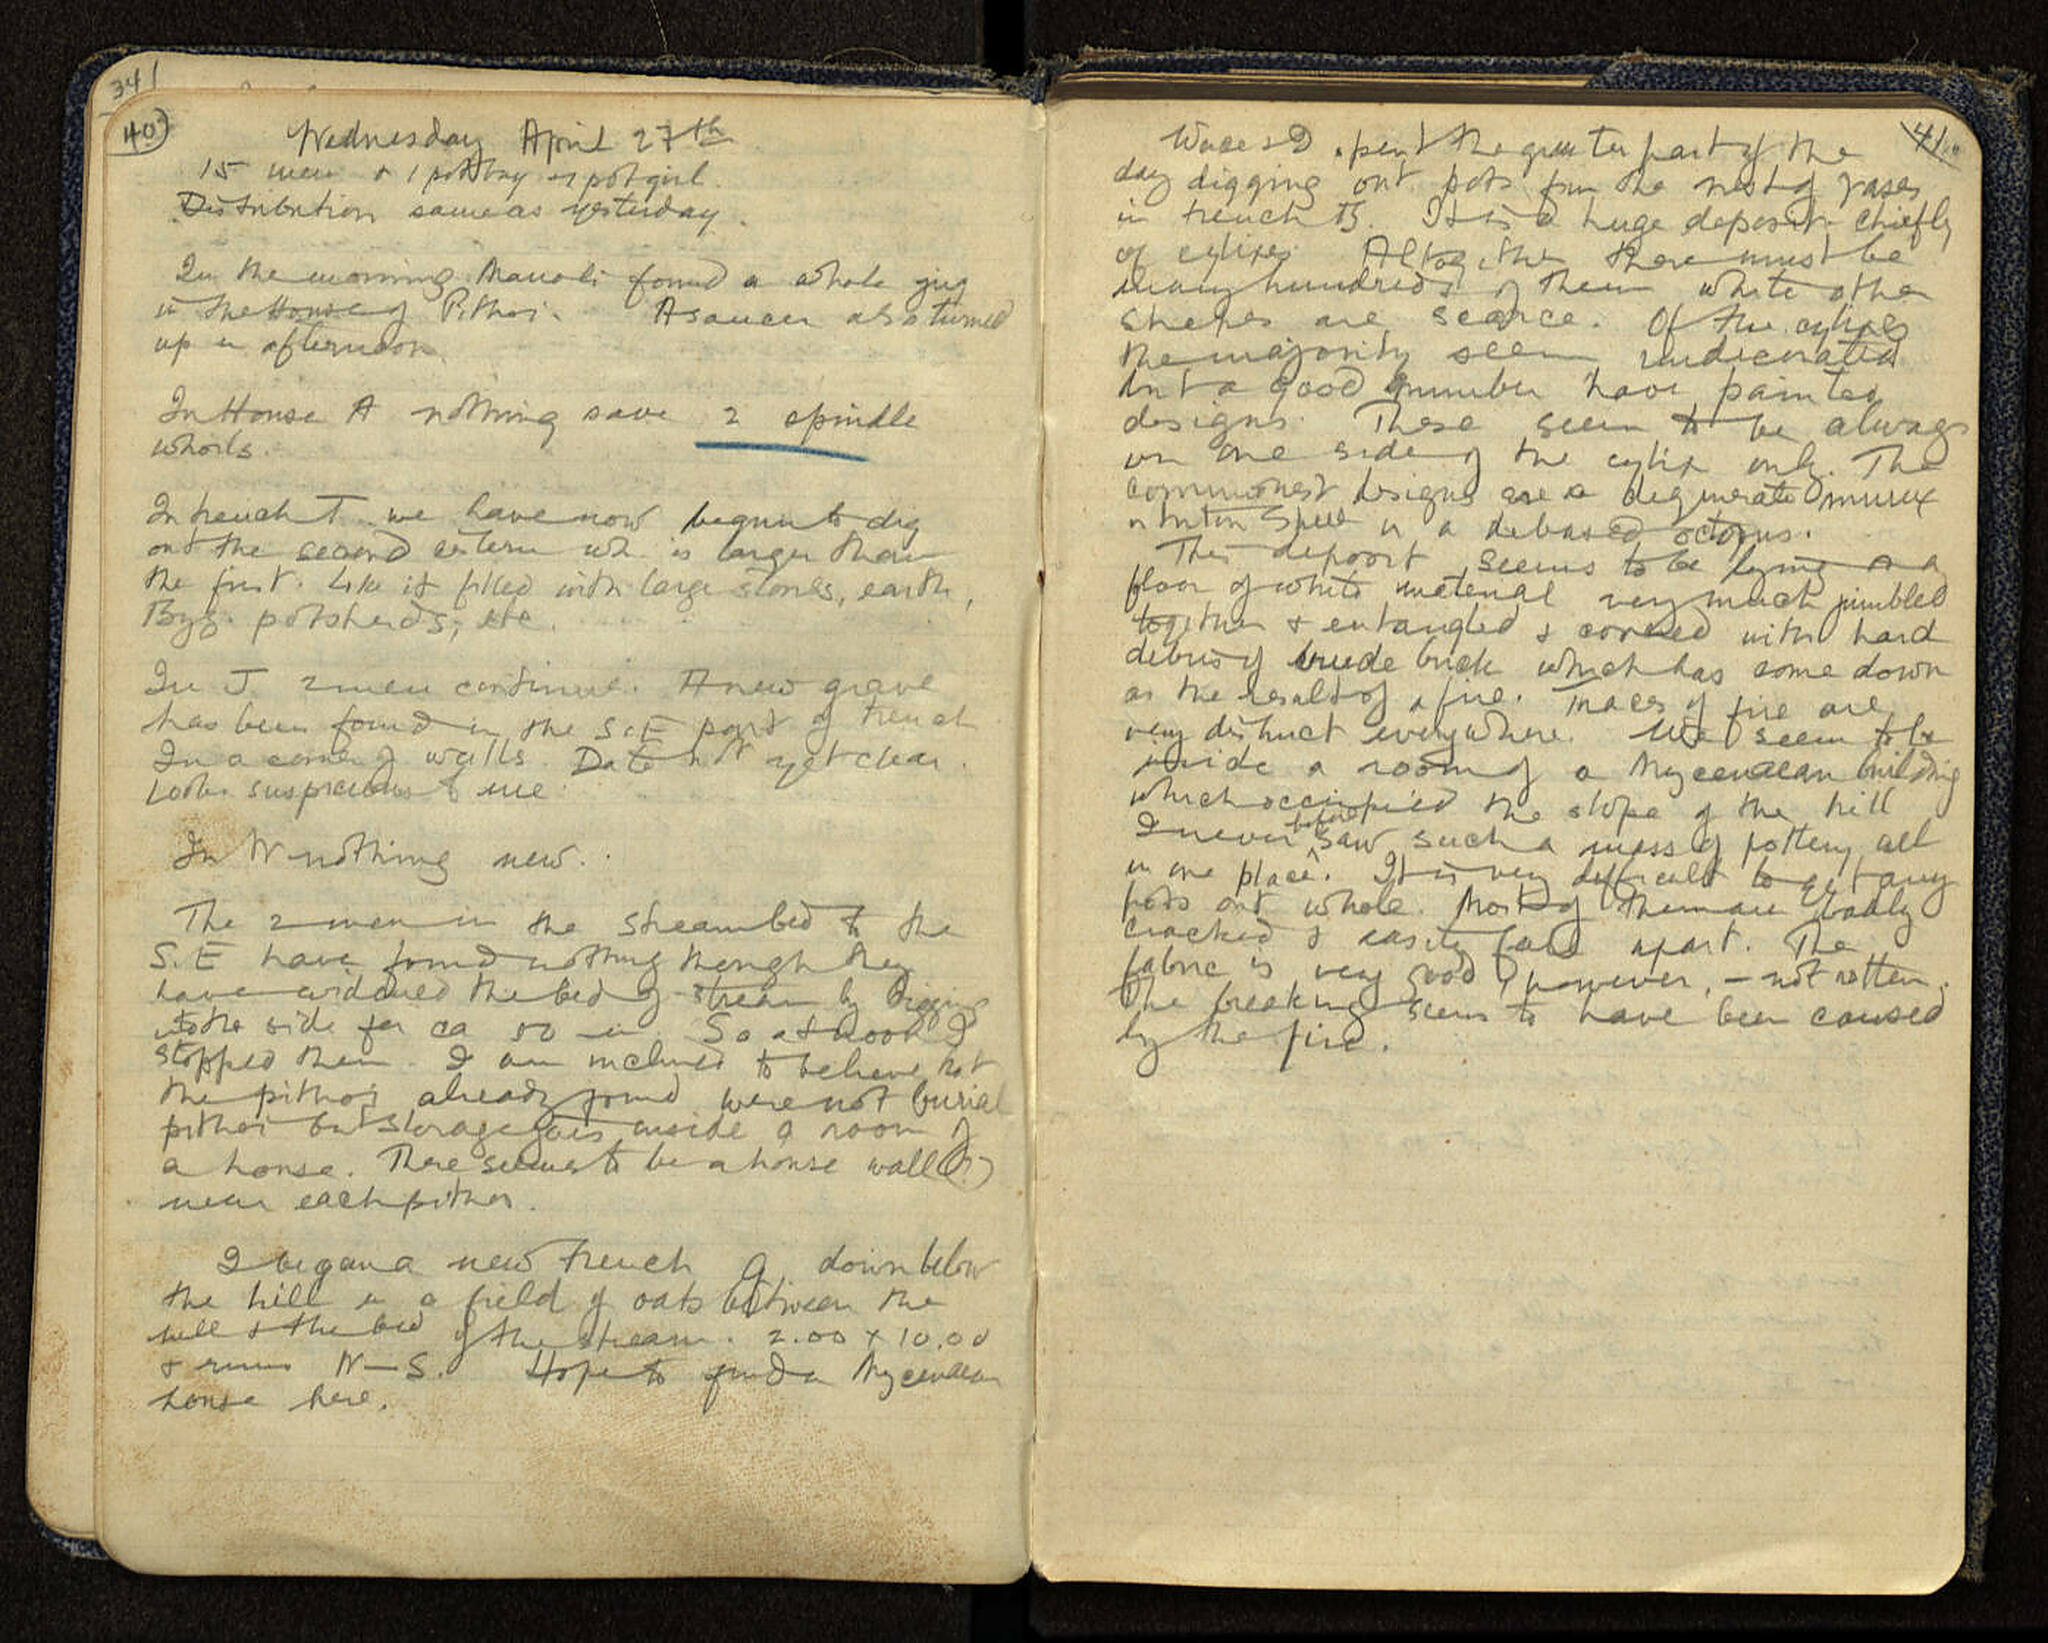 341
40
Wednesday April 27th
15 men + 1 potboy + 1 potgirl.
Distribution same as yesterday.
In the morning Manoli found a whole jug
in the House of Pithoi. A saucer also turned
up in afternoon.
In House A nothing save 2 spindle
whorls.
In trench T we have now begun to dig
out the second cistern wh. is larger than
the first. Like it filled with large stones, earth,
Byz. potsherds, etc.
In J 2 men continue. A new grave
has been found in the S.E part of trench
In a corner of walls. Date not yet clear.
Looks suspicious to me.
In W nothing new.
The 2 men in the streambed to the
S.E have found nothing though they
have widened the bed of stream by digging
into the side for ca 50 m. So at noon I
stopped them. I am inclined to believe that
the pithoi already found were not burial
pithoi but storage jars inside a room of
a house. There seems to be a house wall (?)
near each pithos.
I began a new trench G down below
the hill in a field of oats between the
hill & the bed of the stream. 2.00 x 10.00
& runs N—S. Hope to find a Mycenaean
house here.
41
Wace & I spent the greater part of the
day digging out pots from the nest of vases
in trench B. It is a huge deposit chiefly
of cylixes. Altogether there must be
many hundreds of them while other
shapes are scarce. Of the cylixes
the majority seem undecorated
but a good number have painted
designs. These seem to be always
on one side of the cylix only. The
commonest designs are a degenerate murex
or triton shell or a debased octopus.
This deposit seems to be lying on a
floor of white material very much jumbled
together & entangled & covered with hard
debris of crude brick which has come down
as the result of a fire. Traces of fire are
very distinct everywhere. We seem to be
inside a room of a Mycenaean building
which occupied the slope of the hill
I never before saw such a mass of pottery all
in one place. It is very difficult to get any
pots out whole. Most of them are badly
cracked & easily fall apart. The
fabric is very good however, — not rotten.
The breaking seems to have been caused
by the fire.